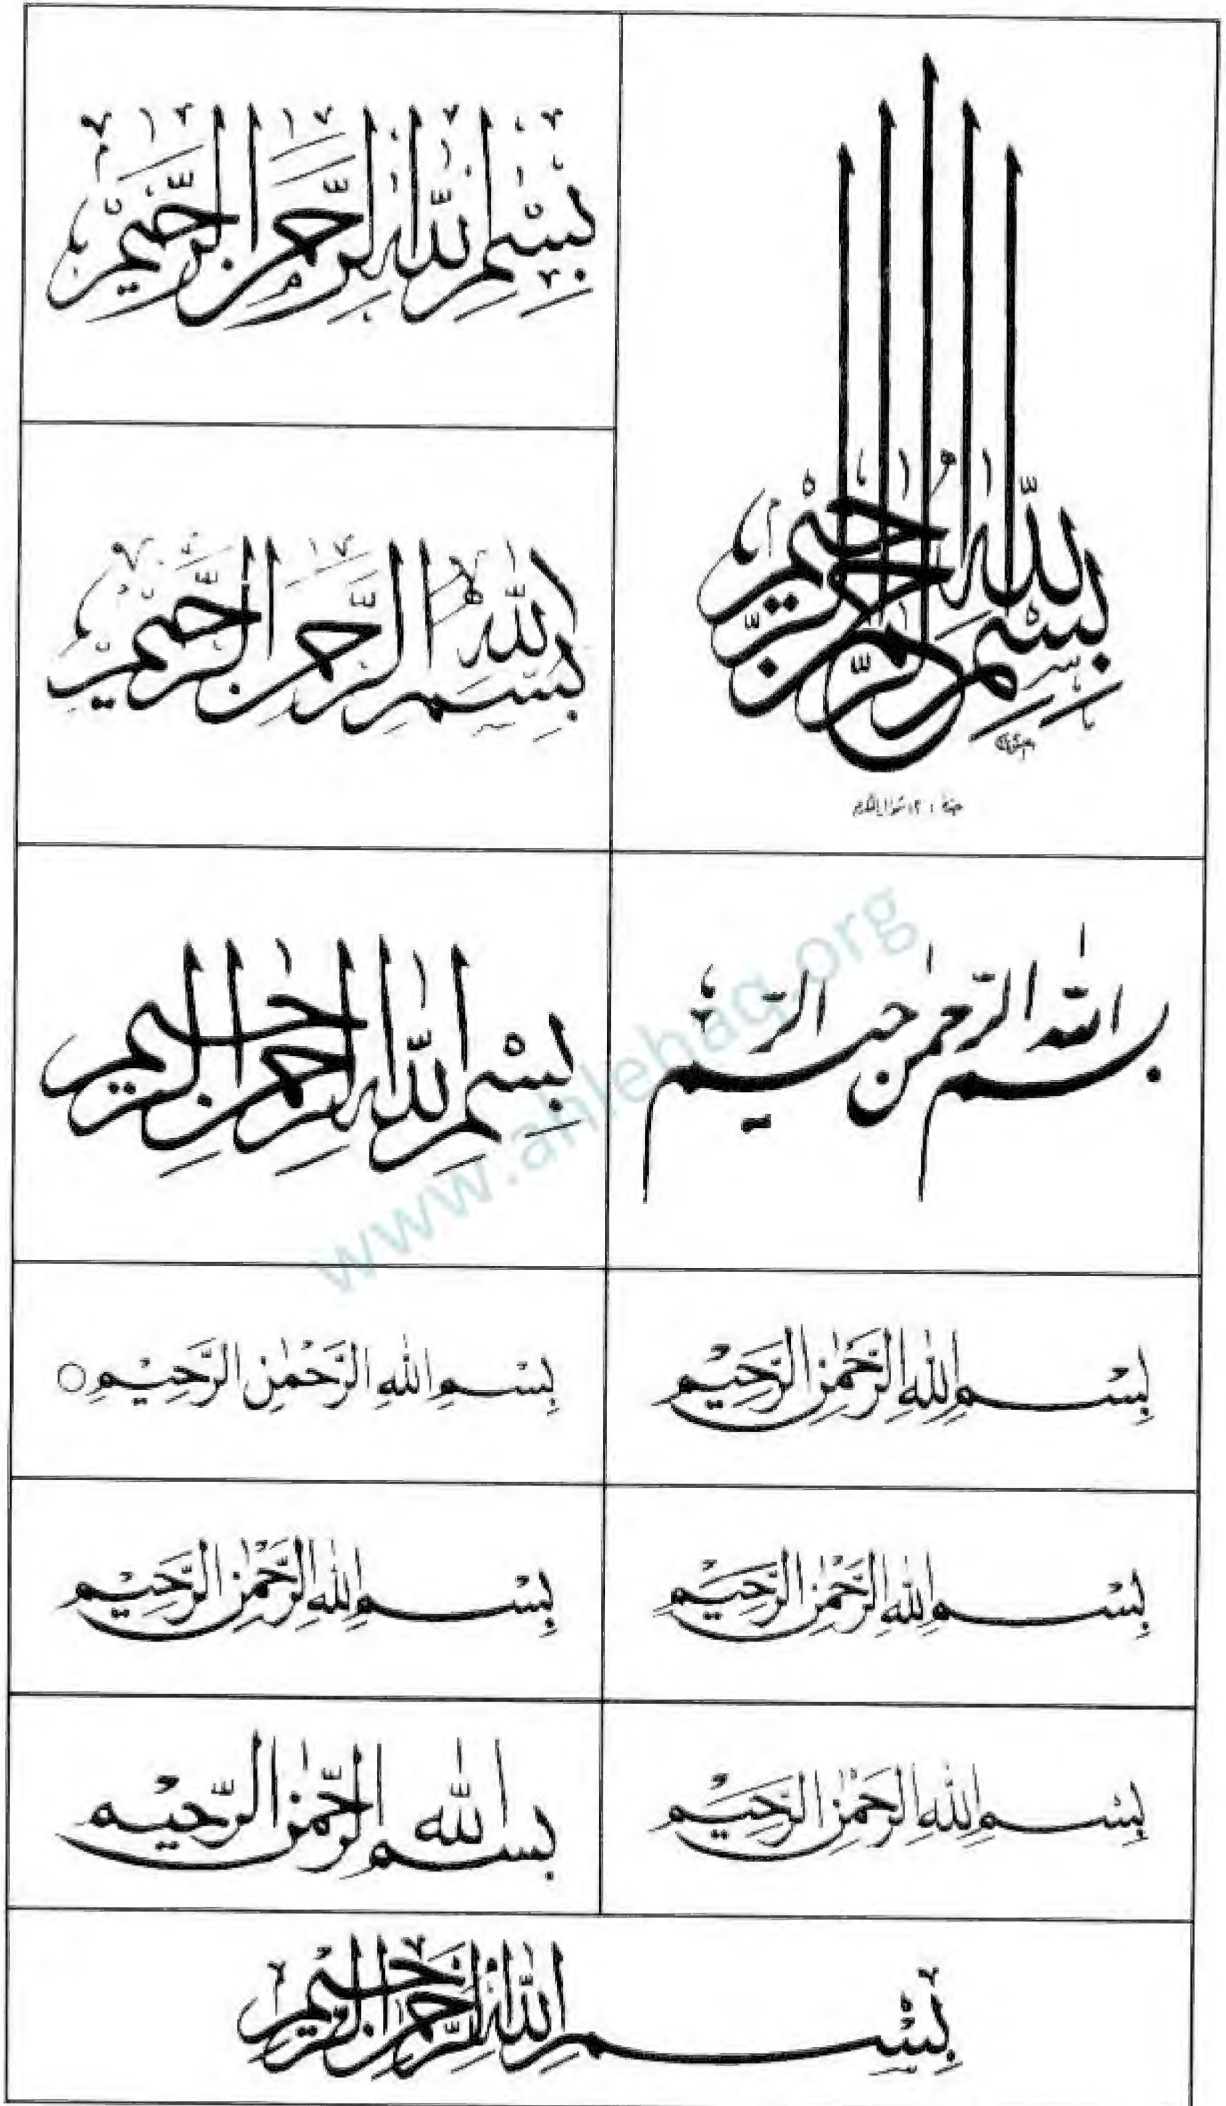 بِسْمِ اللهِ الرَّحْمٰنِ الرَّحِيْمِ
بِسْمِ اللهِ الرَّحْمٰنِ الرَّحِيْمِ
بِسْمِ اللهِ الرَّحْمٰنِ الرَّحِيْمِ
بسم اللّٰه الرّحمٰن الرّحيم
بِسْمِ اللّٰهِ الرَّحْمٰنِ الرَّحِيمِ
www.ahlehaq.org
بِسْمِ اللهِ الرَّحْمٰنِ الرَّحِيْمِ
بِسْمِ اللهِ الرَّحْمٰنِ الرَّحِيْمِ ○
بِسْمِ اللهِ الرَّحْمٰنِ الرَّحِيْمِ
بِسْمِ اللهِ الرَّحْمٰنِ الرَّحِيْمِ
بِسْمِ اللهِ الرَّحْمٰنِ الرَّحِيْمِ
بسم اللّٰه الرّحمٰن الرّحيْم
بِسْمِ اللّٰهِ الرَّحْمٰنِ الرَّحِيْمِ